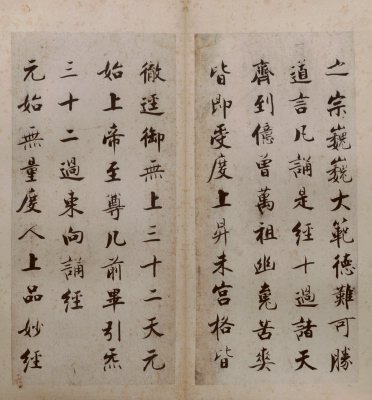 之宗巍巍大範德難可勝
道言凡誦是經十過諸天
齊到億曾萬祖幽魂苦爽
皆即受度上昇朱宮格皆
徹逕御無上三十二天元
始上帝至尊几前畢引炁
三十二過東向誦經
元始無量度人上品妙經